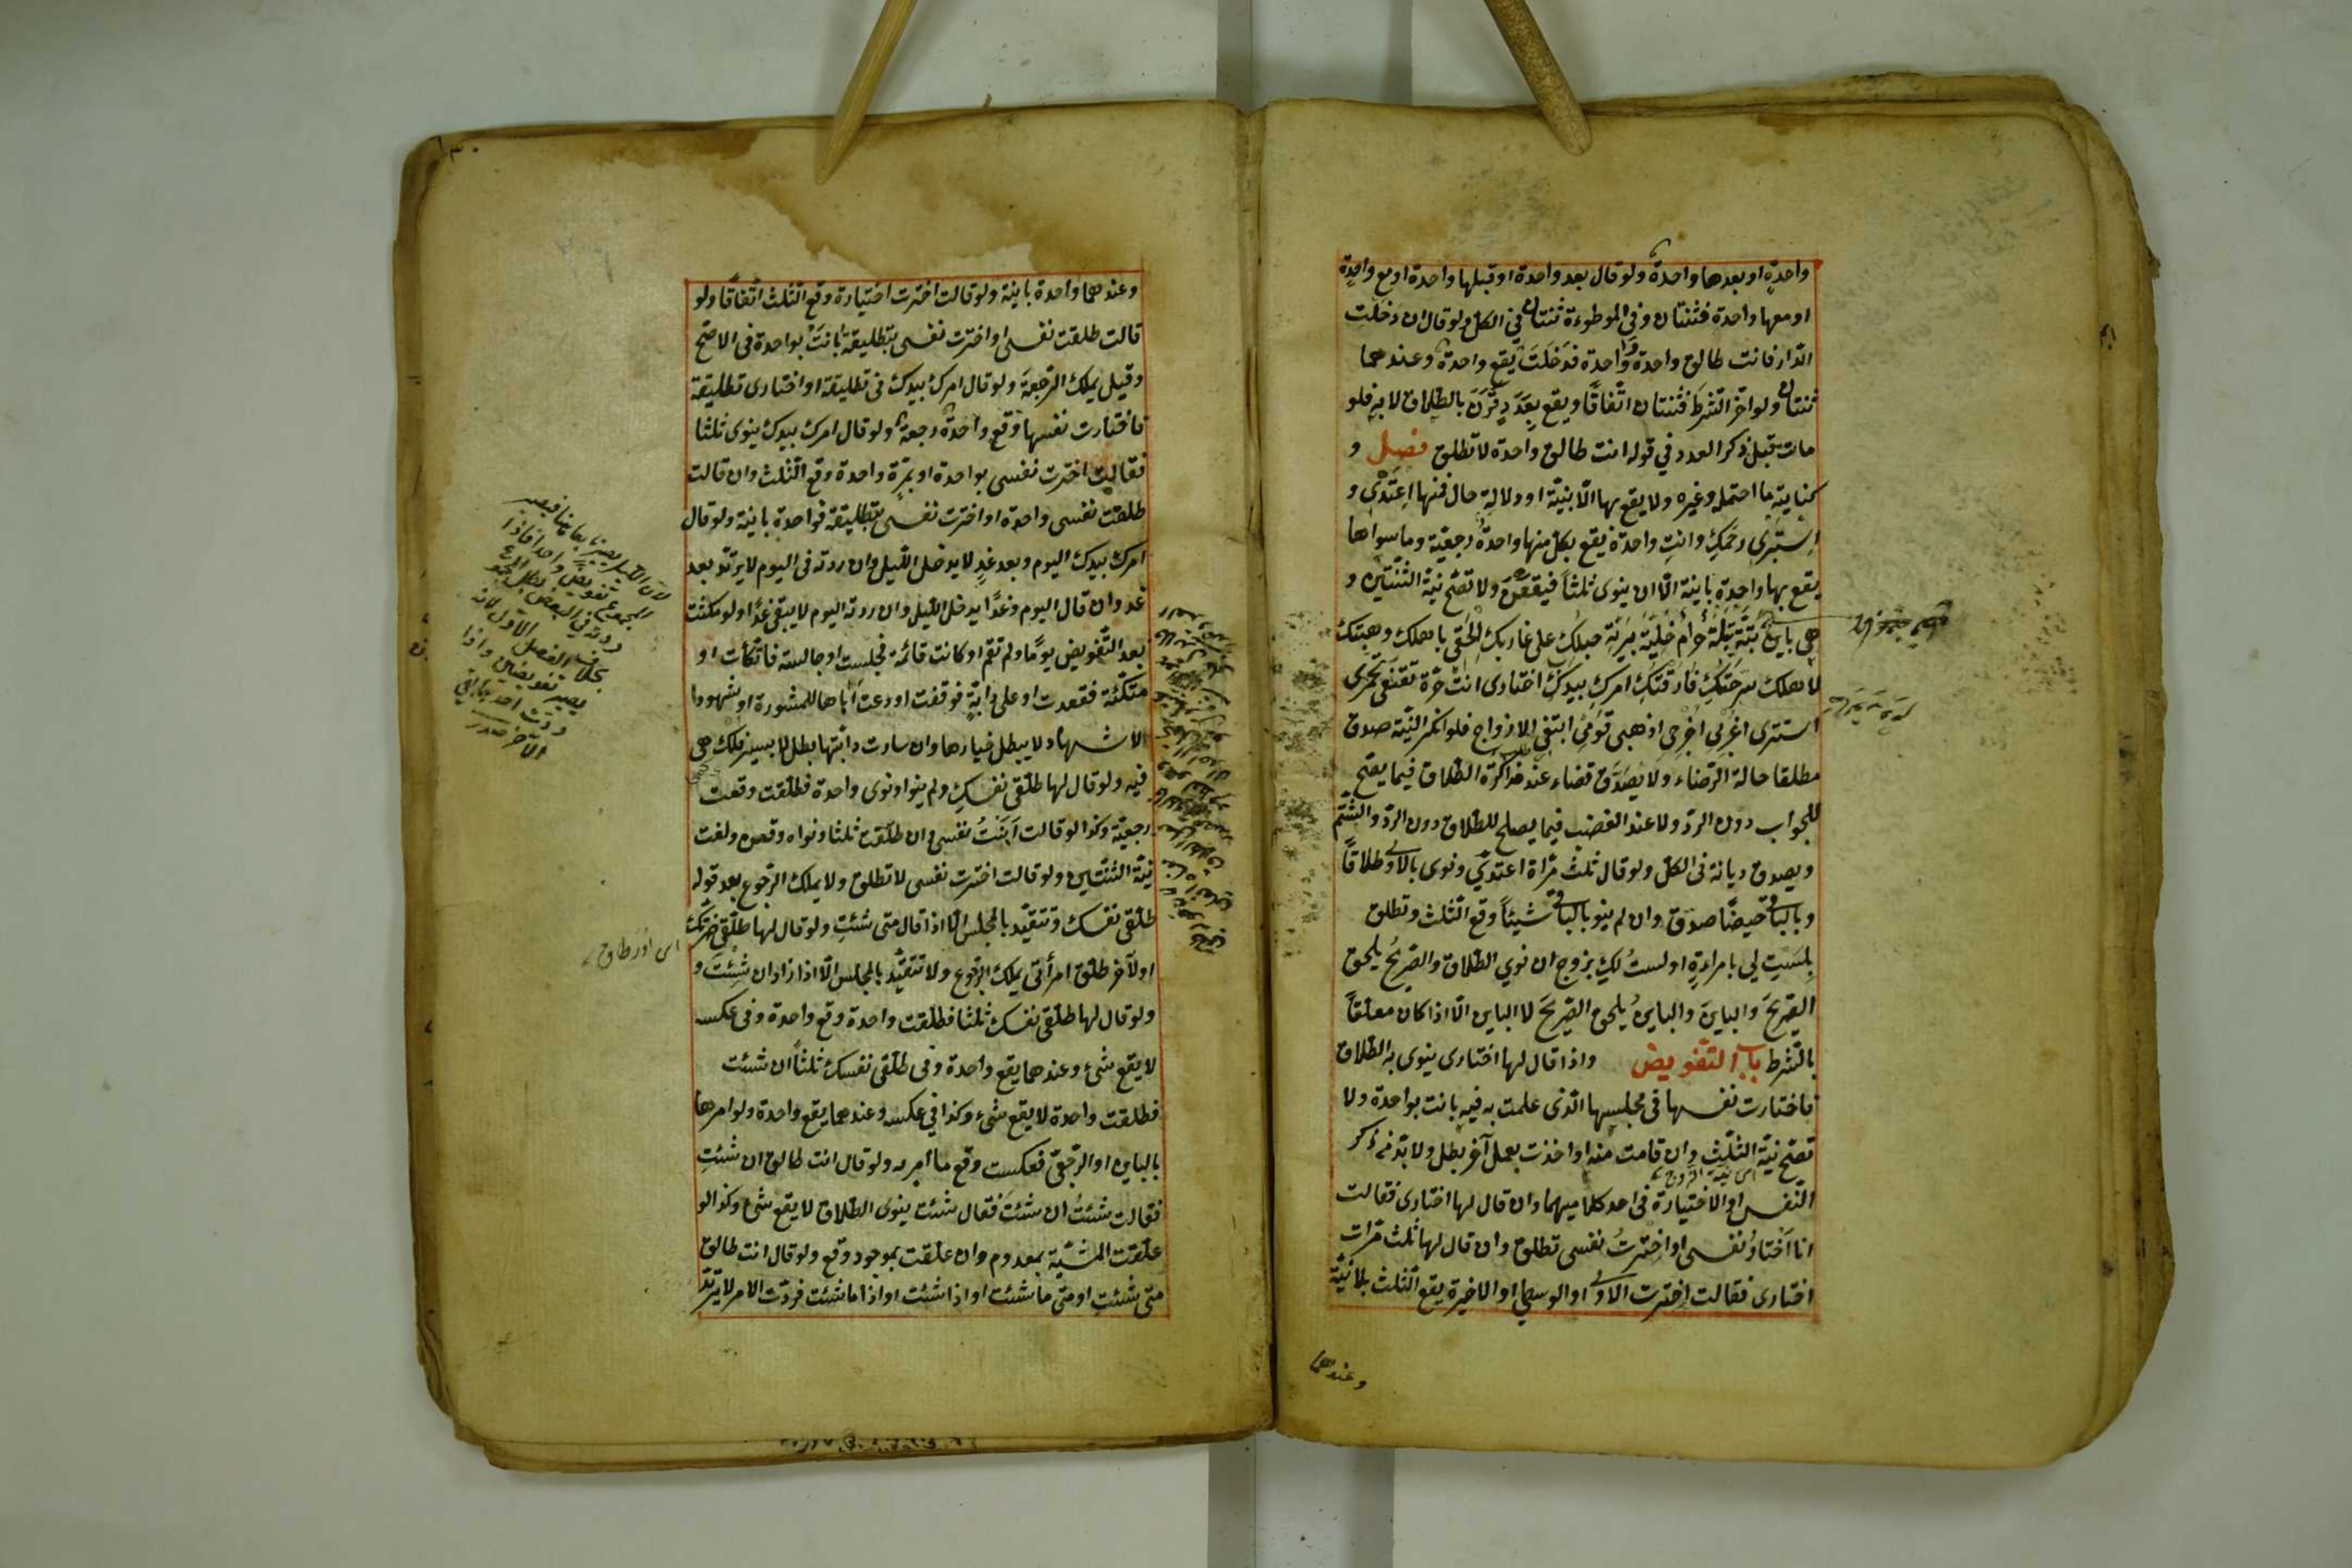 واحدةٍ او بعدها واحدة ولو قال بعد واحدة او قبلها واحدة او مع واحدةٍ
او معها واحدة فثنتان وفي الموطوءة ثنتان في الكل ولو قال ان دخلت
الدار فانت طالق واحدة وواحدة فدخلت يقع واحدة وعندهما
ثنتان ولو اخر الشرط فثنتان اتفاقًا ويقع بعدد قرن بالطلاق لا به فلو
مات قبل ذكر العدد في قوله انت طالق واحدة لا تطلق فصل و
كنايته ما احتمله وغيره ولا يقع بها الا بنية او دلالة حال فمنها اعتدي و
استبرئ رحمك وانت واحدة يقع بكل منها واحدة رجعية وما سواها
يقع بها واحدة باينة الا ان ينوى ثلثاً فيقعن ولا تصح نية الثنتين و
هي باين بتة بتلة حرام خلية برية حبلك على غاربك الحقى باهلك وهبتك
لاهلك سرحتك فارقتك امرك بيدك اختارى انت حرة تقنعى تخمرى
استترى اغربي اخرجي اذهبي قومي ابتغي الازواج فلو انكر النية صدق
مطلقا حالة الرضاء ولا يصدق قضاء عند مذاكرة الطلاق فيما يصح
للجواب دون الرد ولا عند الغضب فيما يصلح للطلاق دون الرد والشتم
ويصدق ديانة في الكل ولو قال ثلث مراة اعتدي ونوى بالاولى طلاقاً
وبالباقى حيضًا صدق وان لم ينو بالباقى شيئاً وقع الثلث وتطلق
بلست لي بامراءة او لستُ لك بزوج ان نوي الطلاق والصريحُ يلحق
الصريحَ والباينَ والباينُ يلحق الصريحَ لا الباين الا اذا كان معلقاً
بالشرط باب التفويض واذا قال لها اختارى ينوى به الطلاق
فاختارت نفسها في مجلسها الذى علمت به فيه بانت بواحدة ولا
تصح نية الثلث وان قامت منه او اخذت بعمل آخر بطل ولا بد من ذكر
اى نية الزوج
النفس او الاختيارة في احد كلاميهما وان قال لها اختارى فقالت
انا اختارُ نفسى او اخترتُ نفسى تطلق وان قال لها ثلث مرات
اختارى فقالت اخترت الاولى او الوسطى او الاخيرة يقع الثلث بلا نية
وعندهما
وعندهما واحدة باينة ولو قالت اخترت اختيارة وقع الثلث اتفاقًا ولو
قالت طلقت نفسى او اخترت نفسى بتطليقة بانت بواحدة في الاصح
وقيل يملك الرجعة ولو قال امرك بيدك في تطليقة او اختارى تطليقة
فاختارت نفسها وقع واحدة رجعة ولو قال امرك بيدك ينوى ثلثا
فقالت اخترت نفسى بواحدة او بمرة واحدة وقع الثلث وان قالت
طلقت نفسى واحدة او اخترت نفسى بتطليقة فواحدة باينة ولو قال
امرك بيدك اليوم وبعد غدٍ لا يدخل الليل وان ردته في اليوم لا يرتد بعد
غد وان قال اليوم وغدًا يدخل الليل وان ردته اليوم لا يبقى غدًا ولو مكثت
بعد التفويض يومًا ولم تقم او كانت قائمة فجلست او جالسة فاتكأت او
متكئة فقعدت او على دابة فوقفت او دعت اباها للمشورة او شهودا
الاشهاد لا يبطل خيارها وان سارت دابتها بطل لا بسير فلك هي
فيه ولو قال لها طلقى نفسك ولم ينو او نوى واحدة فطلقت وقعت
رجعية وكذا لو قالت ابنتُ نفسى وان طلقت ثلثا ونواه وقعن ولغت
نية الثنتين ولو قالت اخترت نفسى لا تطلق ولا يملك الرجوع بعد قوله
طلقى نفسك وتتقيد بالمجلس الا اذا قال متى شئتِ ولو قال لها طلقى ضرتك
او لآخر طلق امرأتى يملك الرجوع ولا تتقيد بالمجلس الا اذا زاد ان شئت و
ولو قال لها طلقى نفسك ثلثا فطلقت واحدة وقع واحدة وفي عكسه
لا يقع شئ وعندهما يقع واحدة وفى طلقى نفسك ثلثاً ان شئت
فطلقت واحدة لا يقع شئ وكذا في عكسه وعندهما يقع واحدة ولو امرها
بالباين او الرجعى فعكست وقع ما امر به ولو قال انت طالق ان شئتِ
فقالت شئتُ ان شئتَ فقال شئت ينوى الطلاق لا يقع شئ وكذا لو
علقت المشية بمعدوم وان علقت بموجود وقع ولو قال انت طالق
متى شئتِ او متى ما شئت او اذا شئت او اذا ما شئت فردت الامر لا يرتد
بخلاف الفصل الاول لانه
يصير تفويضين واذا